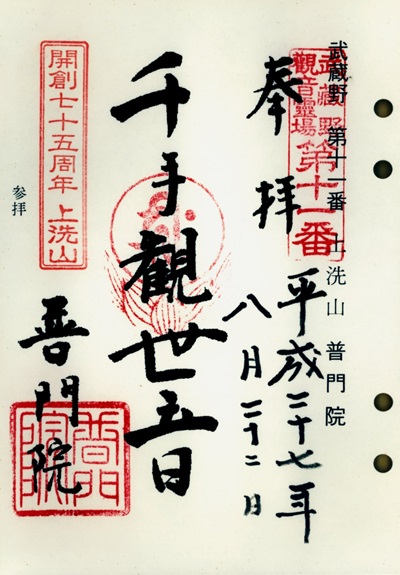 武蔵野 第十一番 上洗山 普門院
武藏野
觀音靈場
第十一番
奉拝
平成二十七年
八月二十二日
千手觀世音
普門院
普門院
開創七十五周年 上洗山
参拝